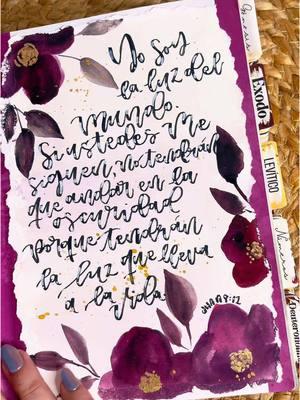 Yo soy
la luz del
mundo.
Si ustedes me
siguen, no tendrán
que andar en la
oscuridad
porque tendrán
la luz que lleva
a la vida
JUAN 8:12
Génesis
Éxodo
LEVÍTICO
Números
Deuteronomio